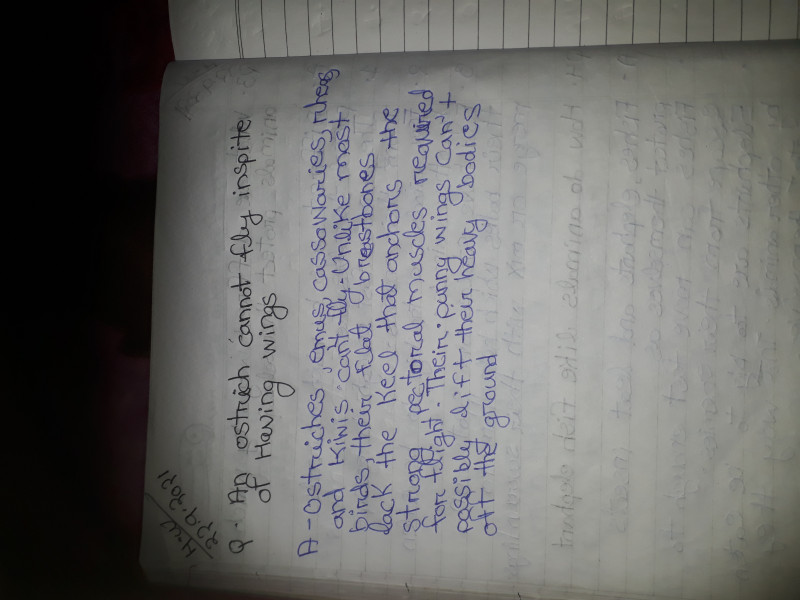 H.W
22.9.2021
Q. An ostrich cannot fly inspite
of Having wings
A - Ostriches, emus, cassowaries, rheas
and Kiwis can't fly. Unlike most
birds, their flat breastbones
lack the keel that anchors the
strong pectoral muscles required
for flight. Their puny wings can't
possibly lift their heavy bodies
off the ground